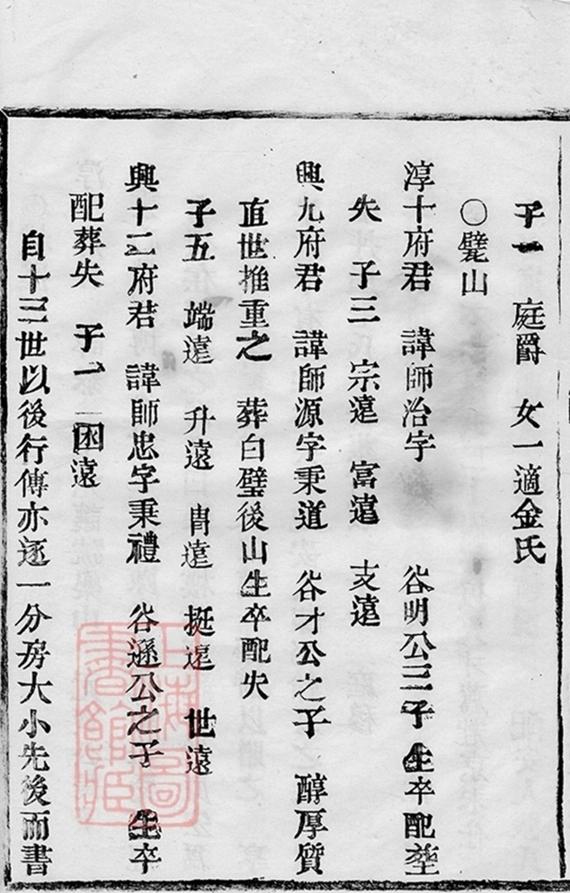 子一　庭爵　女一適金氏
○甓山
淳十府君　諱師治字　　谷明公三子生卒配塟
失　子三　宗遠　富遠　支遠
興九府君　諱師源字秉道　谷才公之子　醇厚質
直世推重之　葬白璧後山生卒配失
子五　端遠　升遠　肯遠　挺遠　世遠
興十二府君　諱師忠字秉禮　谷遜公之子　生卒
配葬失　子一　遠
自十三世以後行傳亦逐一分房大小先後而書
上海圖書館藏